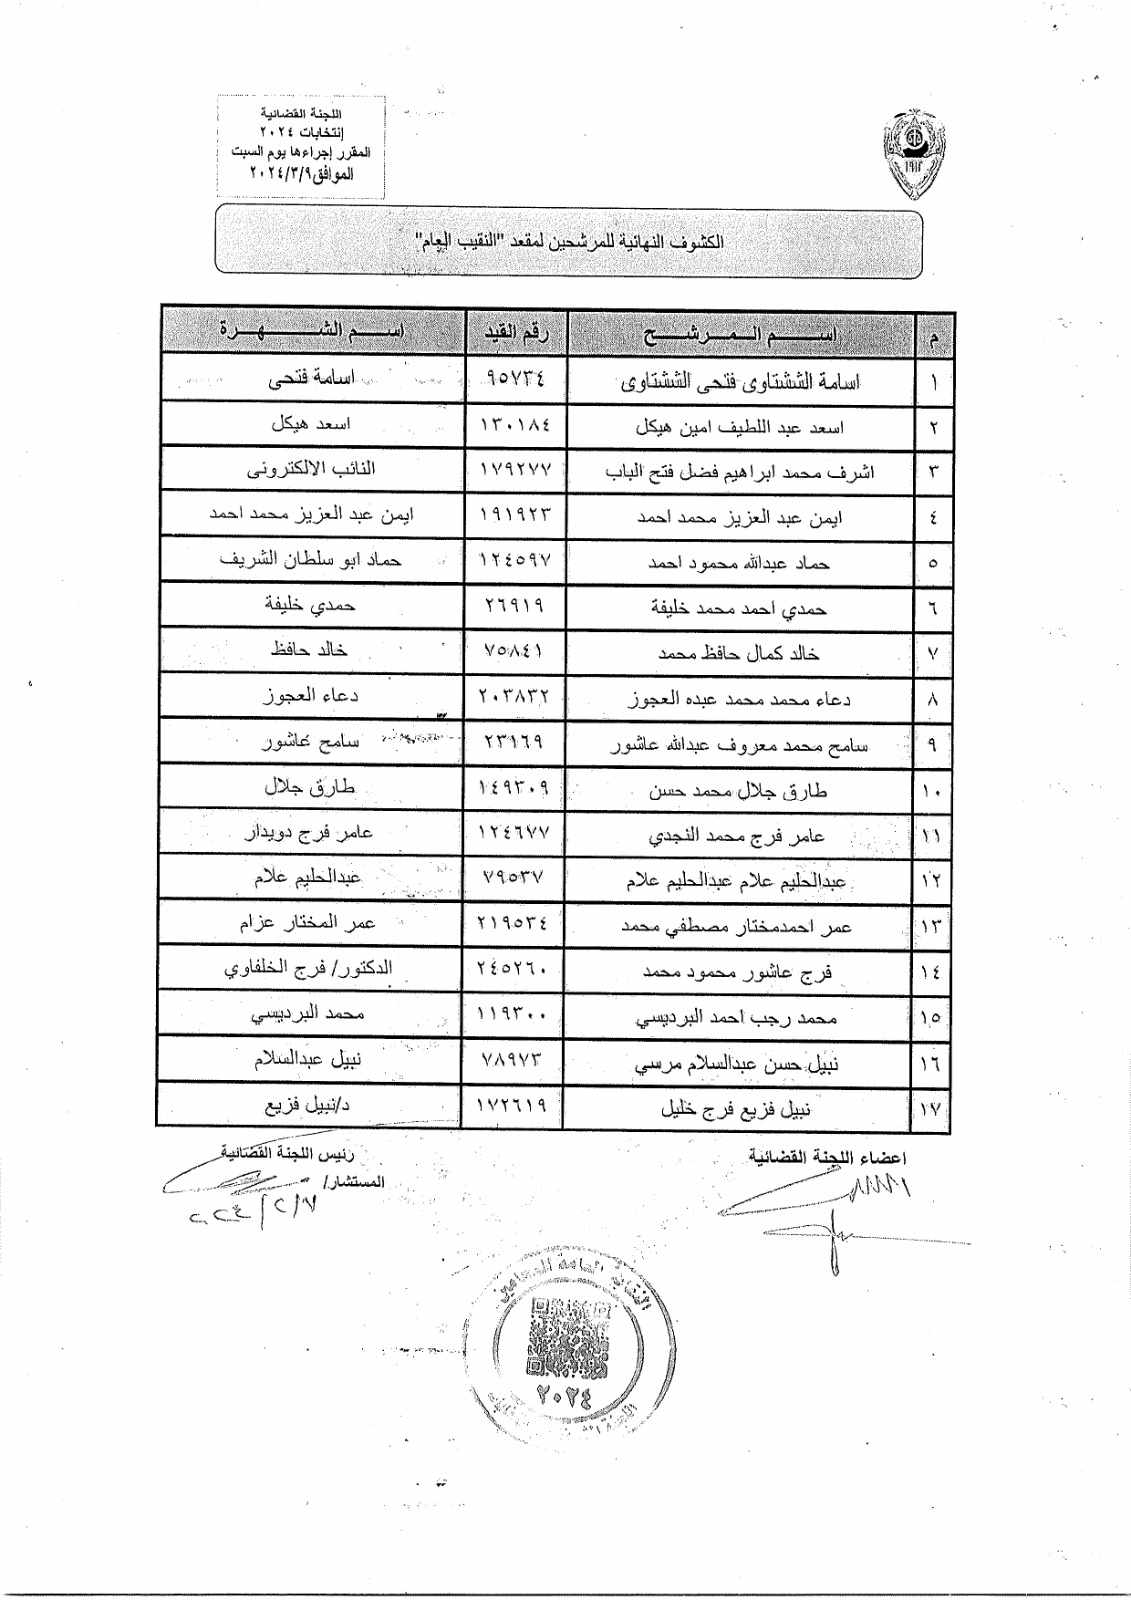 اللجنة القضائية
إنتخابات ٢٠٢٤
المقرر إجراءها يوم السبت
الموافق ٢٠٢٤/٣/٩
١٩١٢
الكشوف النهائية للمرشحين لمقعد "النقيب العام"
م اسم المرشح رقم القيد اسم الشهرة
١ اسامة الششتاوى فتحى الششتاوى ٩٥٧٣٤ اسامة فتحى
٢ اسعد عبد اللطيف امين هيكل ١٣٠١٨٤ اسعد هيكل
٣ اشرف محمد ابراهيم فضل فتح الباب ١٧٩٢٧٧ النائب الالكترونى
٤ ايمن عبد العزيز محمد احمد ١٩١٩٢٣ ايمن عبد العزيز محمد احمد
٥ حماد عبدالله محمود احمد ١٢٤٥٩٧ حماد ابو سلطان الشريف
٦ حمدي احمد محمد خليفة ٢٦٩١٩ حمدي خليفة
٧ خالد كمال حافظ محمد ٧٥٨٤١ خالد حافظ
٨ دعاء محمد محمد عبده العجوز ٢٠٣٨٣٢ دعاء العجوز
٩ سامح محمد معروف عبدالله عاشور ٢٣١٦٩ سامح عاشور
١٠ طارق جلال محمد حسن ١٤٩٣٠٩ طارق جلال
١١ عامر فرج محمد النجدي ١٢٤٦٧٧ عامر فرج دويدار
١٢ عبدالحليم علام عبدالحليم علام ٧٩٥٣٧ عبدالحليم علام
١٣ عمر احمدمختار مصطفي محمد ٢١٩٥٣٤ عمر المختار عزام
١٤ فرج عاشور محمود محمد ٢٤٥٢٦٠ الدكتور/ فرج الخلفاوي
١٥ محمد رجب احمد البرديسي ١١٩٣٠٠ محمد البرديسي
١٦ نبيل حسن عبدالسلام مرسي ٧٨٩٧٣ نبيل عبدالسلام
١٧ نبيل فزيع فرج خليل ١٧٢٦١٩ د/نبيل فزيع
اعضاء اللجنة القضائية
رئيس اللجنة القضائية
المستشار/
النقابة العامة للمحامين
٢٠٢٤